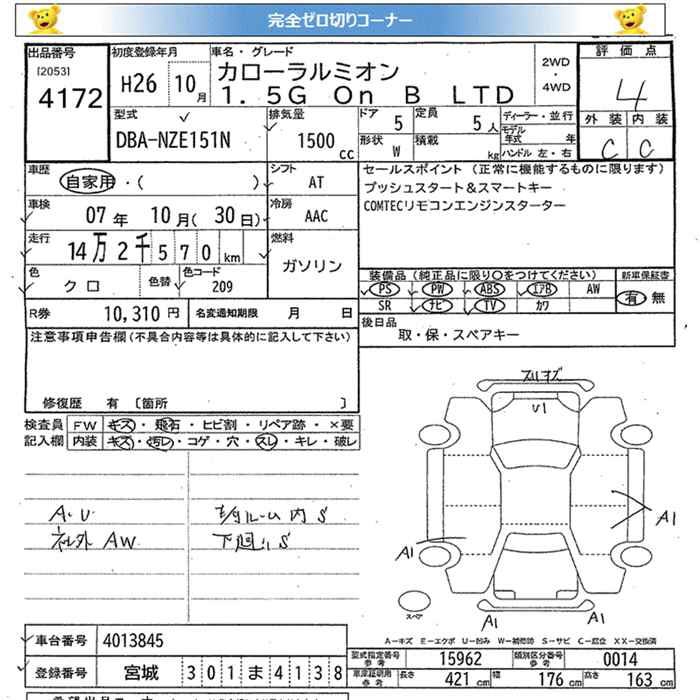 完全ゼロ切りコーナー
出品番号
[2053]
4172
初度登録年月
H26 10月
車名・グレード
カローラルミオン
1.5G On B LTD
2WD
・
4WD
評価点
4
外装 内装
C C
型式
DBA-NZE151N
排気量
1500cc
ドア 5
定員 5人
ディーラー・並行
モデル年式 年
形状 W
積載 kg
ハンドル 左・右
車歴
自家用・( )
シフト
AT
車検
07年 10月(30日)
冷房
AAC
走行
14万2千570km
燃料
ガソリン
色
クロ
色替
色コード
209
R券 10,310円
名変通知期限 月 日
セールスポイント (正常に機能するものに限ります)
プッシュスタート&スマートキー
COMTECリモコンエンジンスターター
装備品(純正品に限り○をつけてください)
新車保証書
PS PW ABS エアB AW
SR ナビ TV カワ
有 無
後日品
取・保・スペアキー
注意事項申告欄(不具合内容等は具体的に記入して下さい)
修復歴 有 〔箇所 〕
検査員記入欄
FW キズ・飛石・ヒビ割・リペア跡・×要
内装 キズ・汚レ・コゲ・穴・スレ・キレ・破レ
A・U
ネル外 AW
下廻りS
スリキズ
U1
A1
A1
A1
A1
スペア
A-キズ E-エクボ U-凹み W-補修跡 S-サビ C-腐食 XX-交換済
車台番号 4013845
登録番号 宮城 301ま4138
型式指定番号 参考 15962
類別区分番号 参考 0014
車庫証明用 参考 長さ 421cm 幅 176cm 高さ 163cm